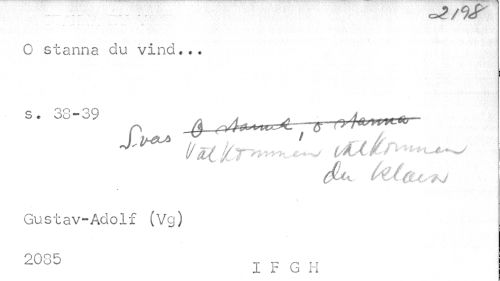 2198
O stanna du vind...
s. 38-39
O stanna, o stanna
Välkommen välkommen
du klara
Gustav-Adolf (Vg)
2085
I F G H